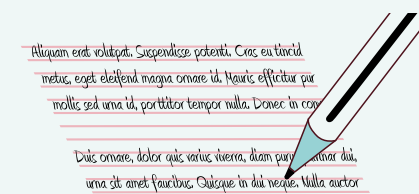 Aliquam erat volutpat. Suspendisse potenti. Cras eu tincid
metus, eget eleifend magna ornare id. Mauris efficitur pur
mollis sed urna id, porttitor tempor nulla. Donec in con
Duis ornare, dolor quis varius viverra, diam dui,
urna sit amet faucibus. Quisque in dui neque. Nulla auctor